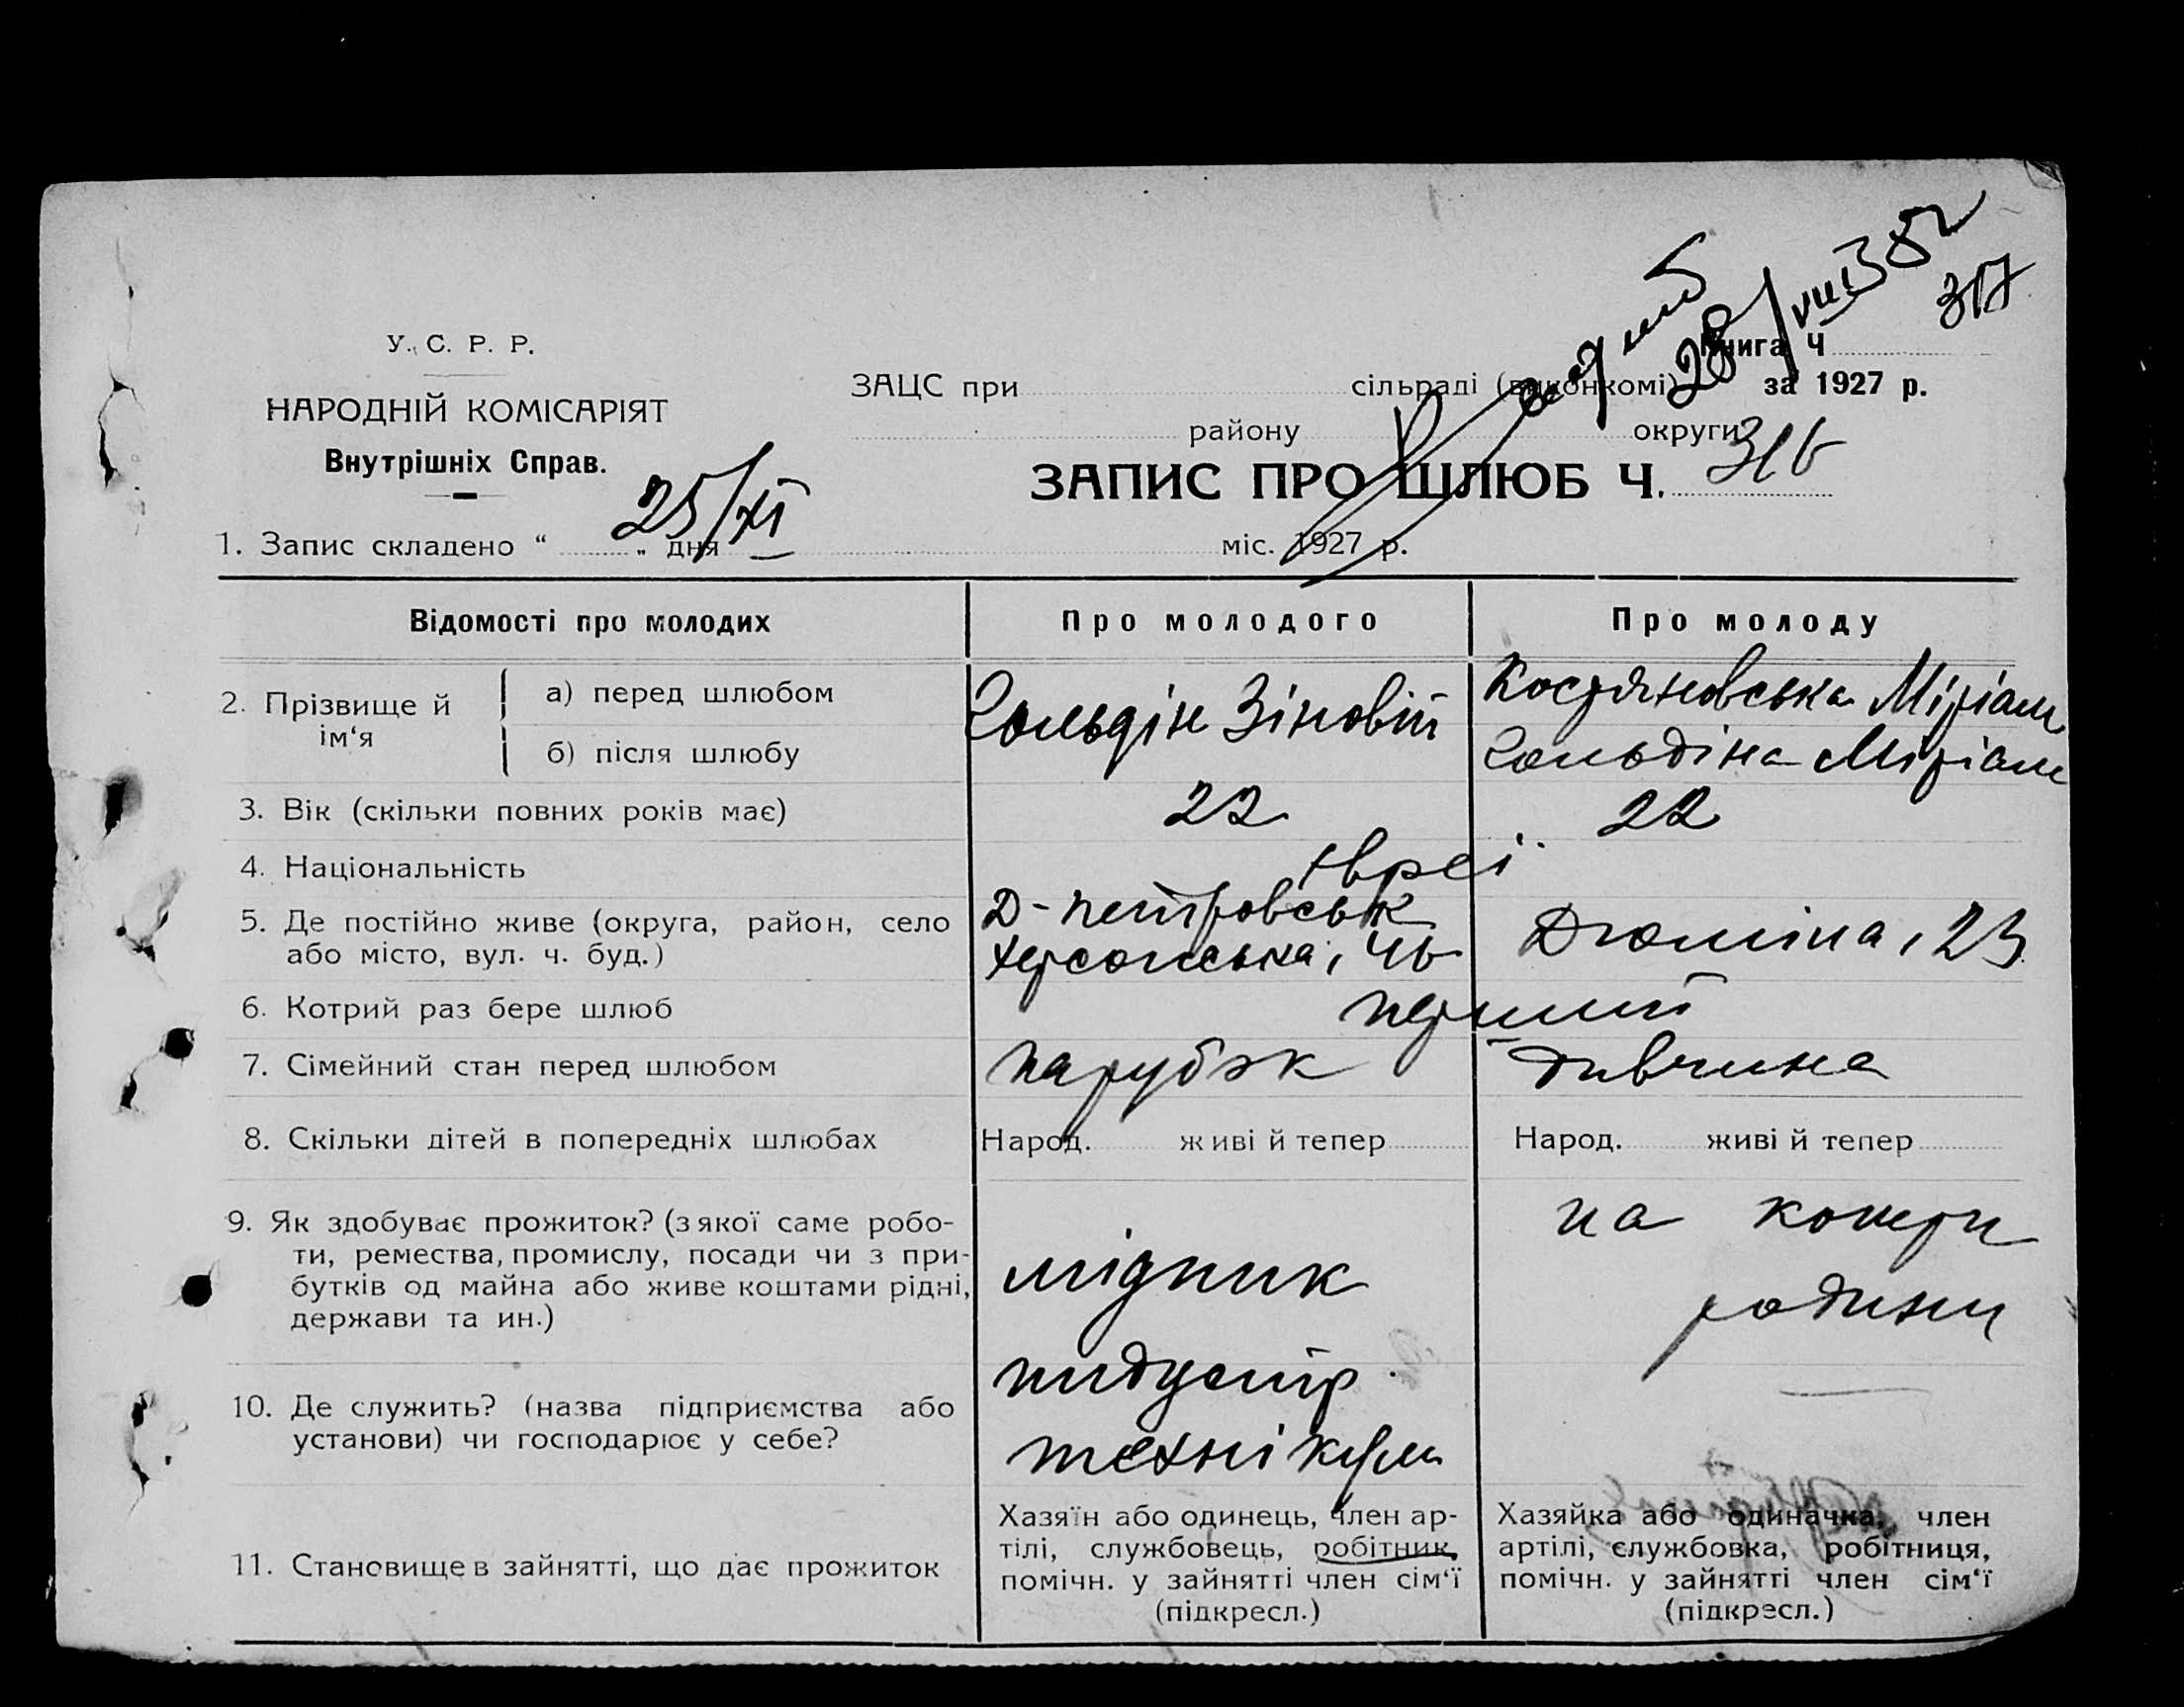 317
У. С. Р. Р.
НАРОДНІЙ КОМІСАРІЯТ
Внутрішніх Справ.
Книга Ч
ЗАЦС при сільраді (виконкомі) за 1927 р.
району округи
ЗАПИС ПРО ШЛЮБ Ч. 316
1. Запис складено “ „ дня 25/XI міс. 1927 р.
Відомості про молодих
Про молодого
Про молоду
2. Прізвище й ім‘я
а) перед шлюбом
Гольдін Зіновій
Міріам
б) після шлюбу
Гольдіна Міріам
3. Вік (скільки повних років має)
22
22
4. Національність
євреї
5. Де постійно живе (округа, район, село
або місто, вул. ч. буд.)
Д-петровськ
Херсонська, 46
23
6. Котрий раз бере шлюб
перший
7. Сімейний стан перед шлюбом
парубок
дивчина
8. Скільки дітей в попередніх шлюбах
Народ. живі й тепер
Народ. живі й тепер
9. Як здобуває прожиток? (з якої саме робо-
ти, ремества, промислу, посади чи з при-
бутків од майна або живе коштами рідні,
держави та ин.)
мідник
на
родини
10. Де служить? (назва підприємства або
установи) чи господарює у себе?
индустр.
технікум
11. Становище в зайнятті, що дає прожиток
Хазяїн або одинець, член ар-
тілі, службовець, робітник,
помічн. у зайнятті член сім‘ї
(підкресл.)
Хазяйка або одиначка, член
артілі, службовка, робітниця,
помічн. у зайнятті член сім‘ї
(підкресл.)